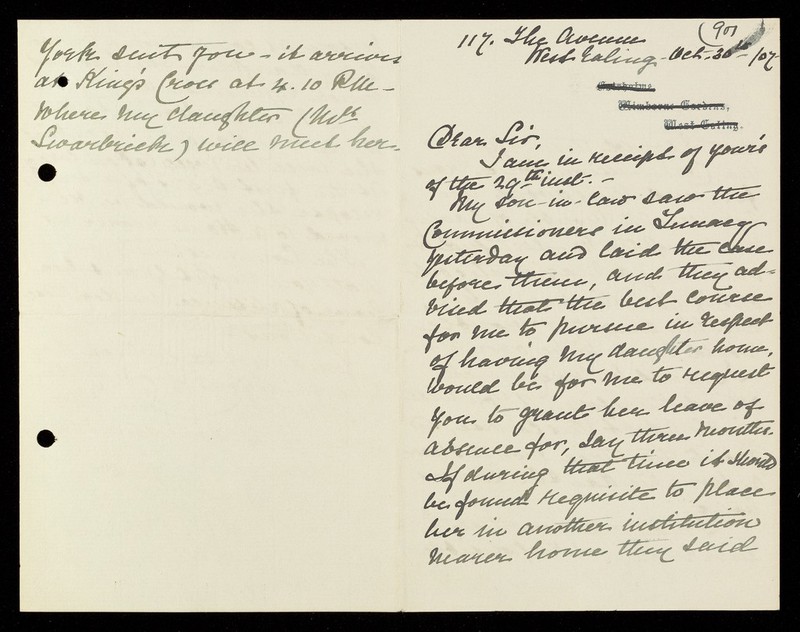 York suits you - it arrives
at King's Cross at 4.10 P.M. -
Where my daughter (Mrs
Swarbrick) will meet her -
90
117. The Avenue
West Ealing - Oct. 30th - /07
Wimborne Gardens,
West Ealing.
Dear Sir,
I am in receipt of your's
of the 29th inst. -
My son-in-law saw the
Commissioners in Lunacy
yesterday and laid the case
before them, and they ad-
vised that the best course
for me to pursue in respect
of having my daughter home,
would be for me to request
you to grant her leave of
absence for, say three months.
If during that time it should
be found requisite to place
her in another institution
nearer home they said